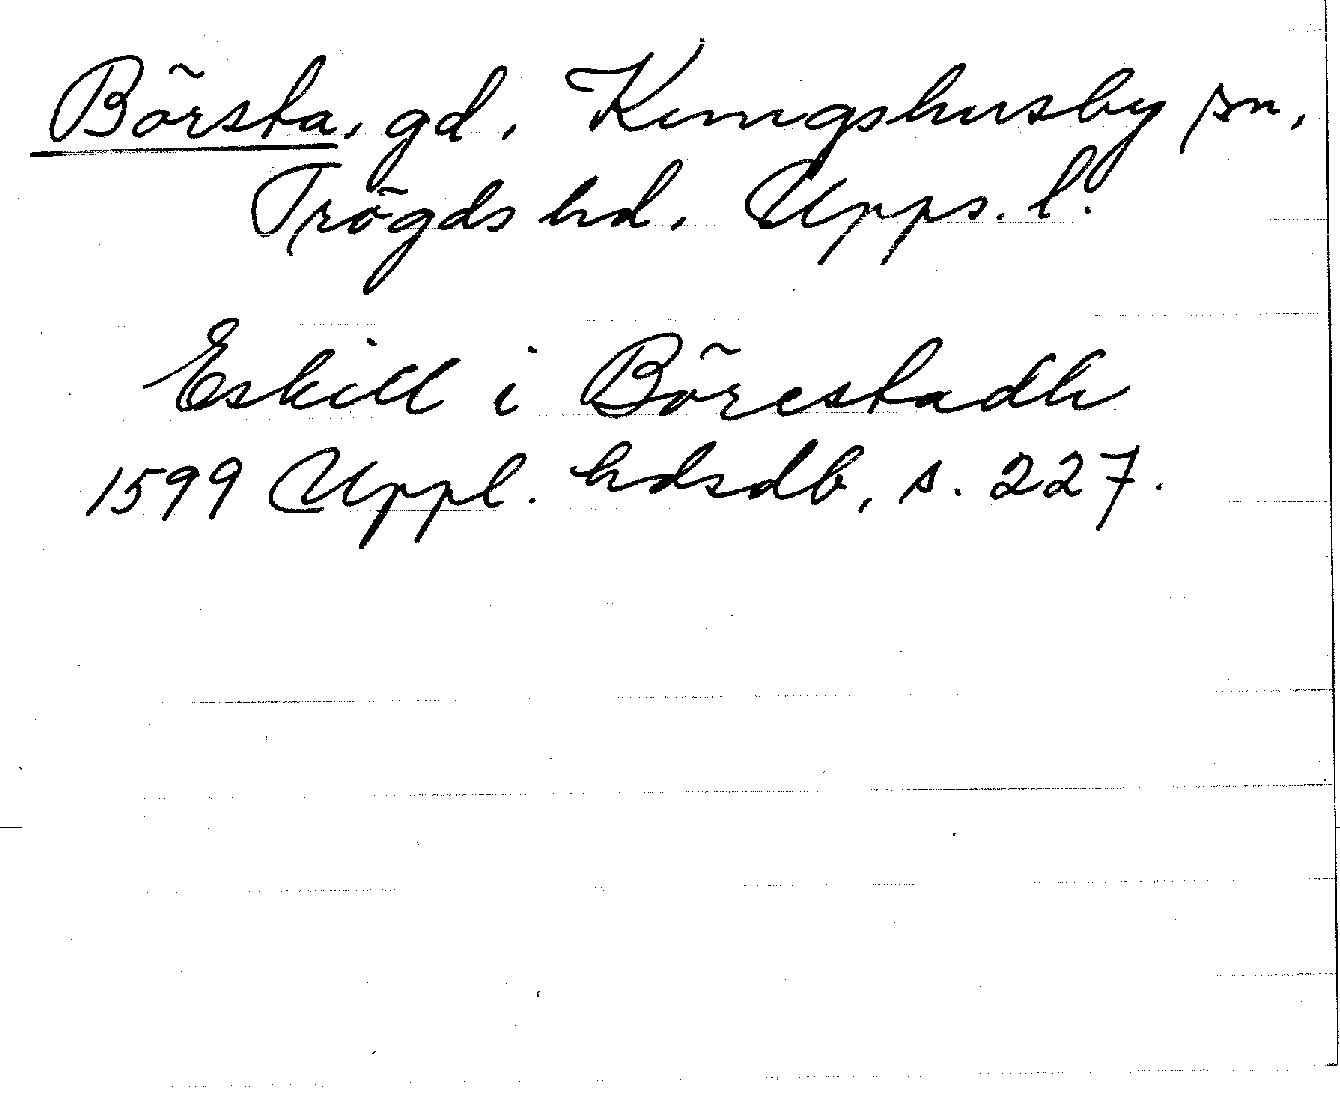 Börsta, gd, Kungshusby sn,
Trögds hd, Upps. l.
Eskill i Börestadh
1599 Uppl. hdsdb, s. 227.